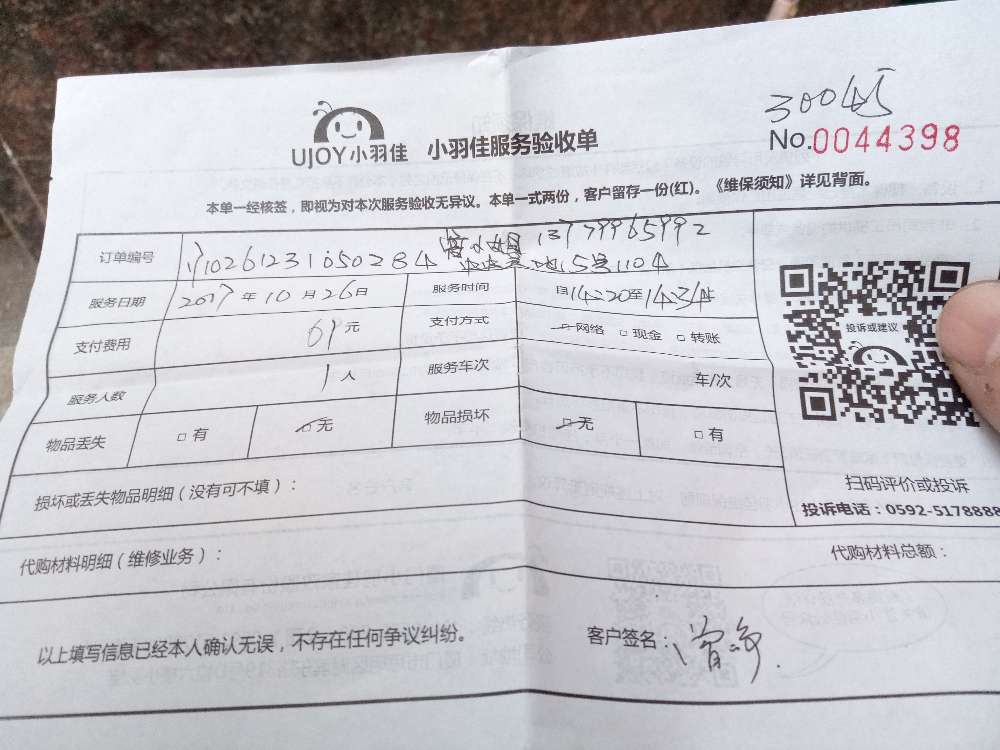 300师
UJOY小羽佳 小羽佳服务验收单
No.0044398
本单一经核签，即视为对本次服务验收无异议。本单一式两份，客户留存一份(红)。《维保须知》详见背面。
订单编号 10261231050284 曾小姐 13799965992
5号1104
服务日期 2017年10月26日 服务时间 自14:20至14:34止
支付费用 69元 支付方式 □网络 □现金 □转账
服务人数 1人 服务车次 车/次
物品丢失 □有 □无 物品损坏 □无 □有
投诉或建议
扫码评价或投诉
投诉电话：0592-5178888
损坏或丢失物品明细（没有可不填）：
代购材料明细（维修业务）： 代购材料总额：
以上填写信息已经本人确认无误，不存在任何争议纠纷。 客户签名：